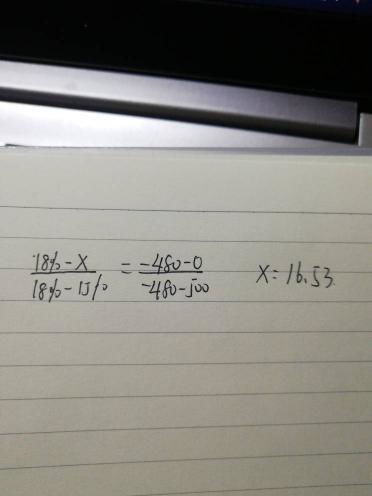 18%-X / 18%-15% = -480-0 / -480-500 X=16.53